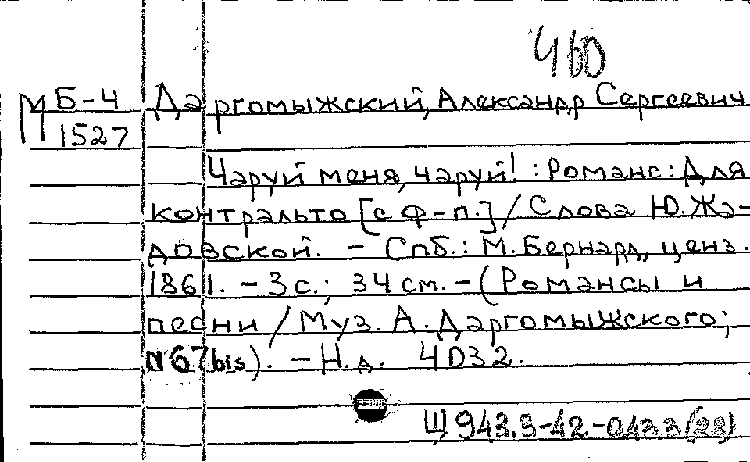 460
М Б-4 Даргомыжский, Александр Сергеевич
1527
Чаруй меня, чаруй! : Романс : Для
контральто [с ф-п.] / Слова Ю. Жа-
довской. - Спб. : М. Бернард, ценз.
1861. - 3 с. ; 34 см. - (Романсы и
песни / Муз. А. Даргомыжского;
N 67 bis). - Н.д. 4032.
Щ 943.3-42-0